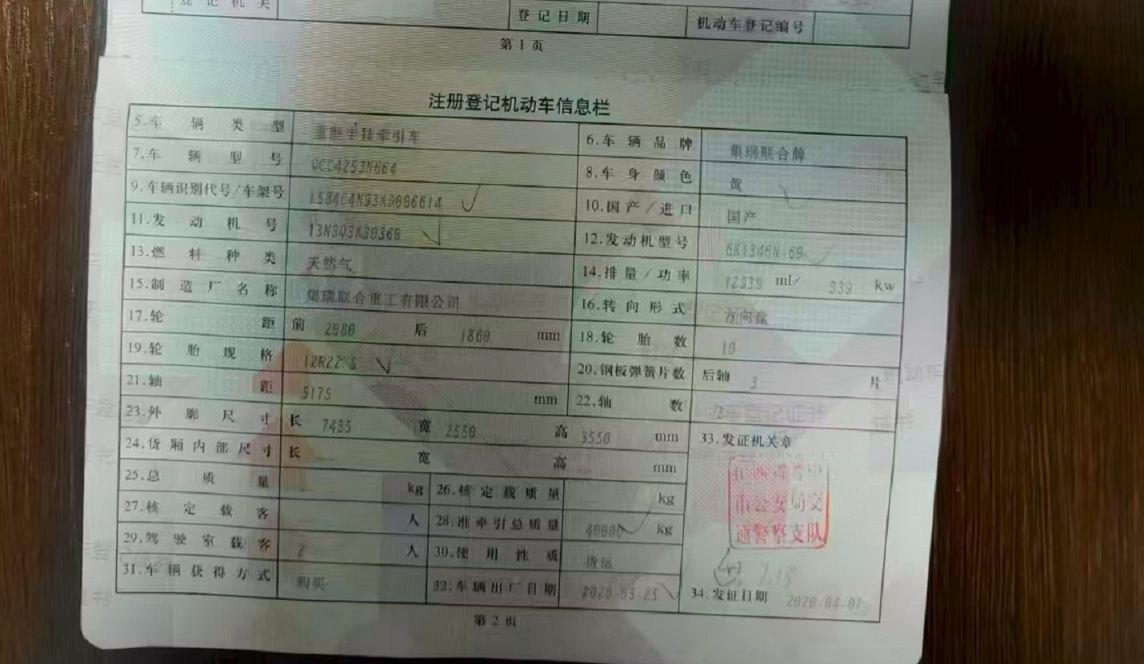 登记机关 登记日期 机动车登记编号
第1页
注册登记机动车信息栏
5.车辆类型 重型半挂牵引车 6.车辆品牌 集瑞联合牌
7.车辆型号 QCC4253N664 8.车身颜色 黄
9.车辆识别代号/车架号 10.国产/进口 国产
11.发动机号 12.发动机型号
13.燃料种类 天然气 14.排量/功率 ml/ kw
15.制造厂名称 集瑞联合重工有限公司 16.转向形式 方向盘
17.轮距 前 2080 后 1860 mm 18.轮胎数 10
19.轮胎规格 12R22.5 20.钢板弹簧片数 后轴 3 片
21.轴距 5175 mm 22.轴数 3
23.外廓尺寸 长 7435 宽 2550 高 3550 mm 33.发证机关章
24.货厢内部尺寸 长 宽 高 mm
25.总质量 kg 26.核定载质量 kg
27.核定载客 人 28.准牵引总质量 40000 kg
市公安局交
通警察支队
29.驾驶室载客 2 人 30.使用性质 货运
31.车辆获得方式 购买 32.车辆出厂日期 2020-03-25 34.发证日期 2020-04-07
第2页